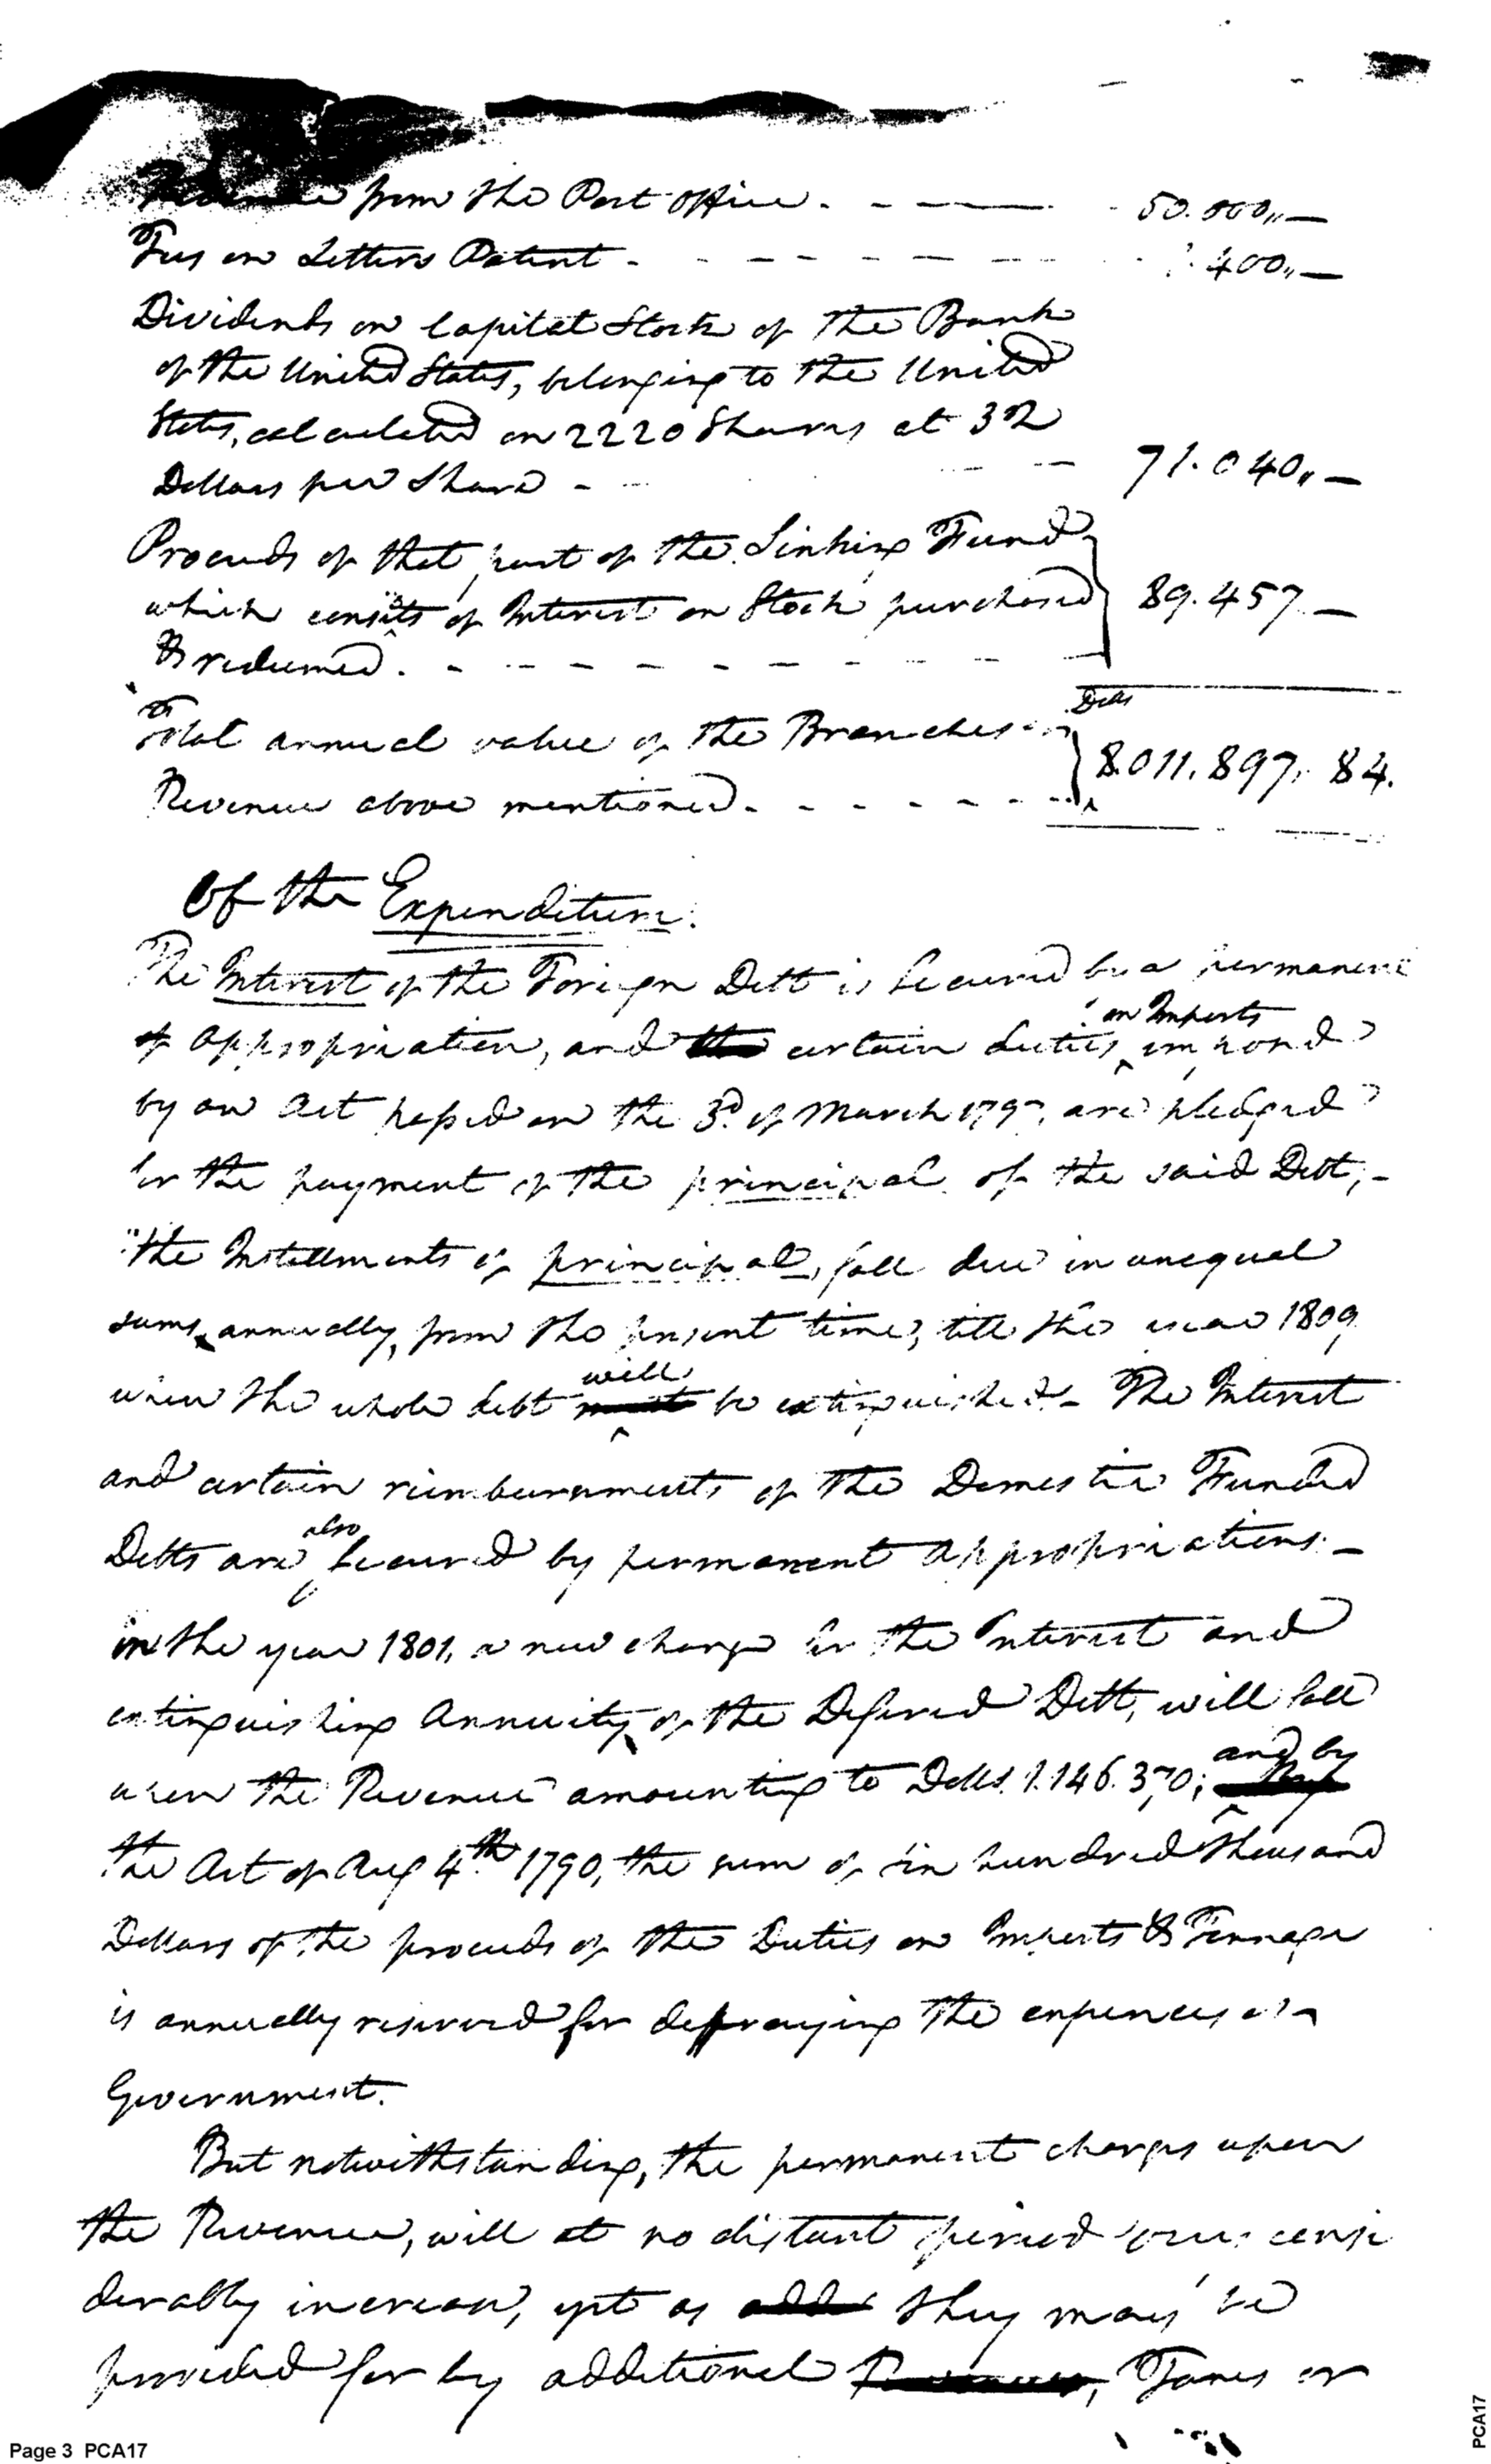 Revenue from the Post Office. - - — - 50.000,,—
Fees on Letters Patent - - - - - - - - - 400,,—
Dividends on Capital Stock of the Bank
of the United States, belonging to the United
States, calculated on 2220 Shares at 32
Dollars per Share - - - - 71.040,,—
Proceeds of that part of the Sinking Fund
which consists of Interest on Stock purchased 89.457 —
& redeemed. - - - - - - - - -
Dolls
Total annual value of the Branches of
8.011.897. 84.
Revenue above mentioned. - - - - - -
Of the Expenditure.
The Interest of the Foreign Debt is secured by a permanent
on Imports
of appropriation, and the certain duties imposed
by an Act passed on the 3d. of March 179 are pledged
for the payment of the principal of the said Debt, -
the Installments of principal, fall due in unequal
sums annually, from the present time, till the year 1809
will
when the whole debt must be extinguished - The Interest
and certain reimbursements of the Domestic Funded
also
Debts are secured by permanent appropriations. —
in the year 1801, a new charge for the Interest and
extinguishing Annuity of the Deferred Debt, will fall
and by
upon the Revenue amounting to Dolls. 1.146.370;
the Act of Aug 4th. 1790, the sum of six hundred thousand
Dollars of the proceeds of the Duties on Imports & Tonnage
is annually reserved for deffraying the expences of
Government.
But notwithstanding, the permanent charges upon
the Revenue, will at no distant period consi
derably increase, yet as they may be
provided for by additional Revenues, Taxes or
Page 3 PCA17
PCA17